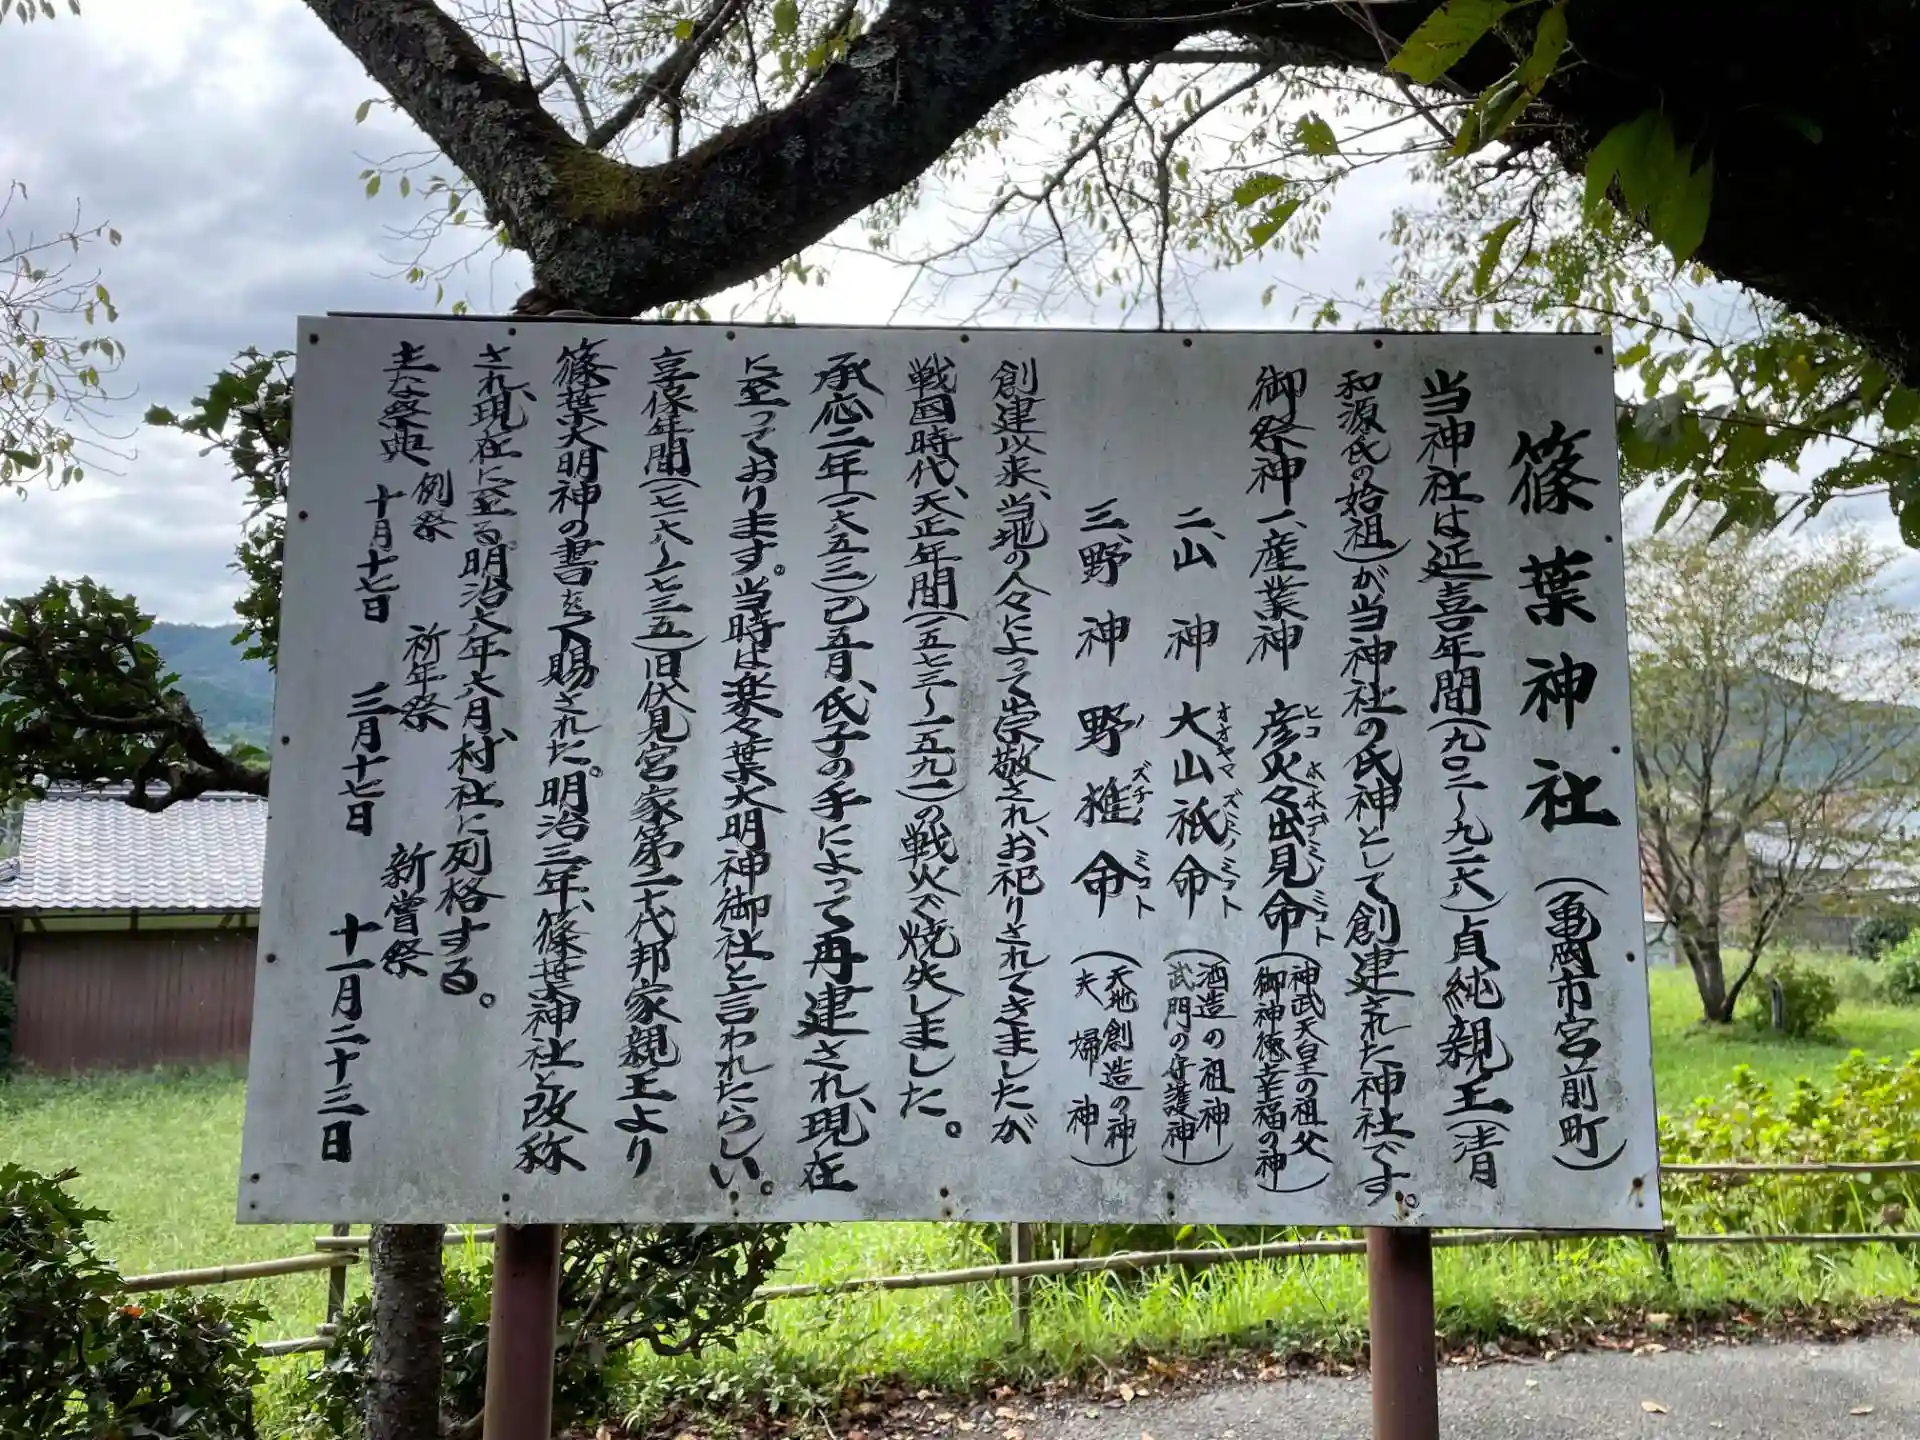 篠葉神社（亀岡市宮前町）
当神社は延喜年間（九〇二～九二六）貞純親王（清
和源氏の始祖）が当神社の氏神として創建された神社です。
御祭神 一、産業神 彦火々出見命（神武天皇の祖父 御神徳幸福の神）
ヒコ ホホデミノミコト
二、山神 大山祇命（酒造の祖神 武門の守護神）
オオヤマズミノミコト
三、野神 野椎命（天地創造の神 夫婦神）
ノズチノミコト
創建以来、当地の人々によって崇敬され、お祀りされてきましたが
戦国時代、天正年間（一五七三～一五九一）の戦火で焼失しました。
承応二年（一六五三）己五月、氏子の手によって再建され、現在
に至っております。当時は楽々葉大明神御社と言われたらしい。
享保年間（一七一六～一七三五）旧伏見宮家第二十代邦家親王より
篠葉大明神の書を下賜された。明治三年、篠葉神社と改称
され、現在に至る。明治六年六月、村社に列格する。
主な祭典 例祭 十月十七日 祈年祭 三月十七日 新嘗祭 十一月二十三日